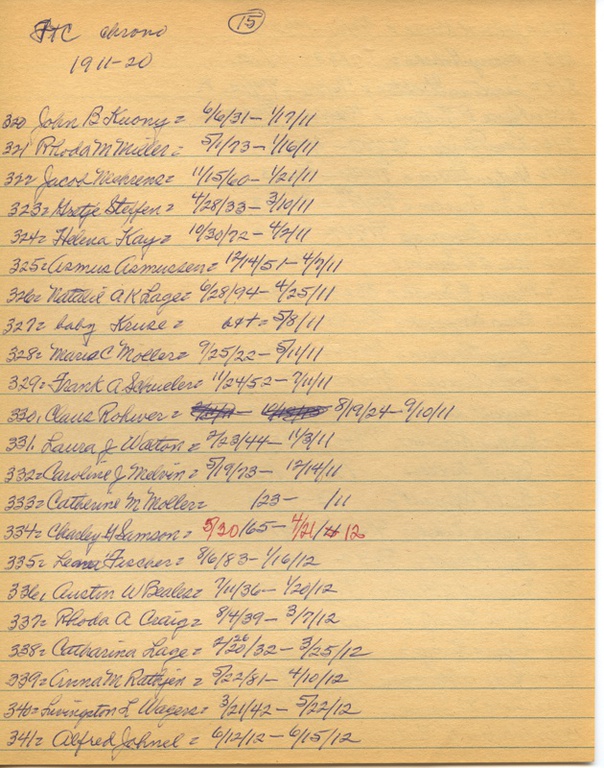 JTC Chrono (15)
1911-20
320 John B Kuony = 6/6/31 - 1/17/11
321 Rhoda M Miller = 5/1/73 - 1/16/11
322 Jacob Niehrens = 11/15/60 - 1/21/11
323 = Gretje Steffen = 4/28/33 - 3/10/11
324 = Helena Kay = 10/30/72 - 4/2/11
325 = Asmus Asmussen = 12/14/51 - 4/7/11
326 = Natalie A K Lage = 6/28/94 - 4/25/11
327 = baby Kruse = = 5/8/11
328 = Maria C Moller = 9/25/22 - 5/11/11
329 = Frank A Schueler = 11/24/52 - 7/11/11
330. Claus Rohwer = 8/19/24 - 9/10/11
331. Laura J Watton = 2/23/44 - 11/3/11
332 = Caroline J Melvin = 5/19/73 - 12/14/11
333 = Catherine M Moller = /23 - /11
334 = Charley H Samson = 5/20/65 - 4/21/12
335 = Fischer = 8/6/83 - 1/16/12
336. Austin W Beales = 7/11/36 - 1/20/12
337 = Rhoda A Craig = 8/4/39 - 3/7/12
338 = Catharina Lage = 2/26/32 - 3/25/12
339 = Anna M Rathjen = 5/22/81 - 4/10/12
340 = Livingston L Wagers = 3/21/42 - 5/22/12
341 = Alfred Johnel = 6/12/12 - 6/15/12